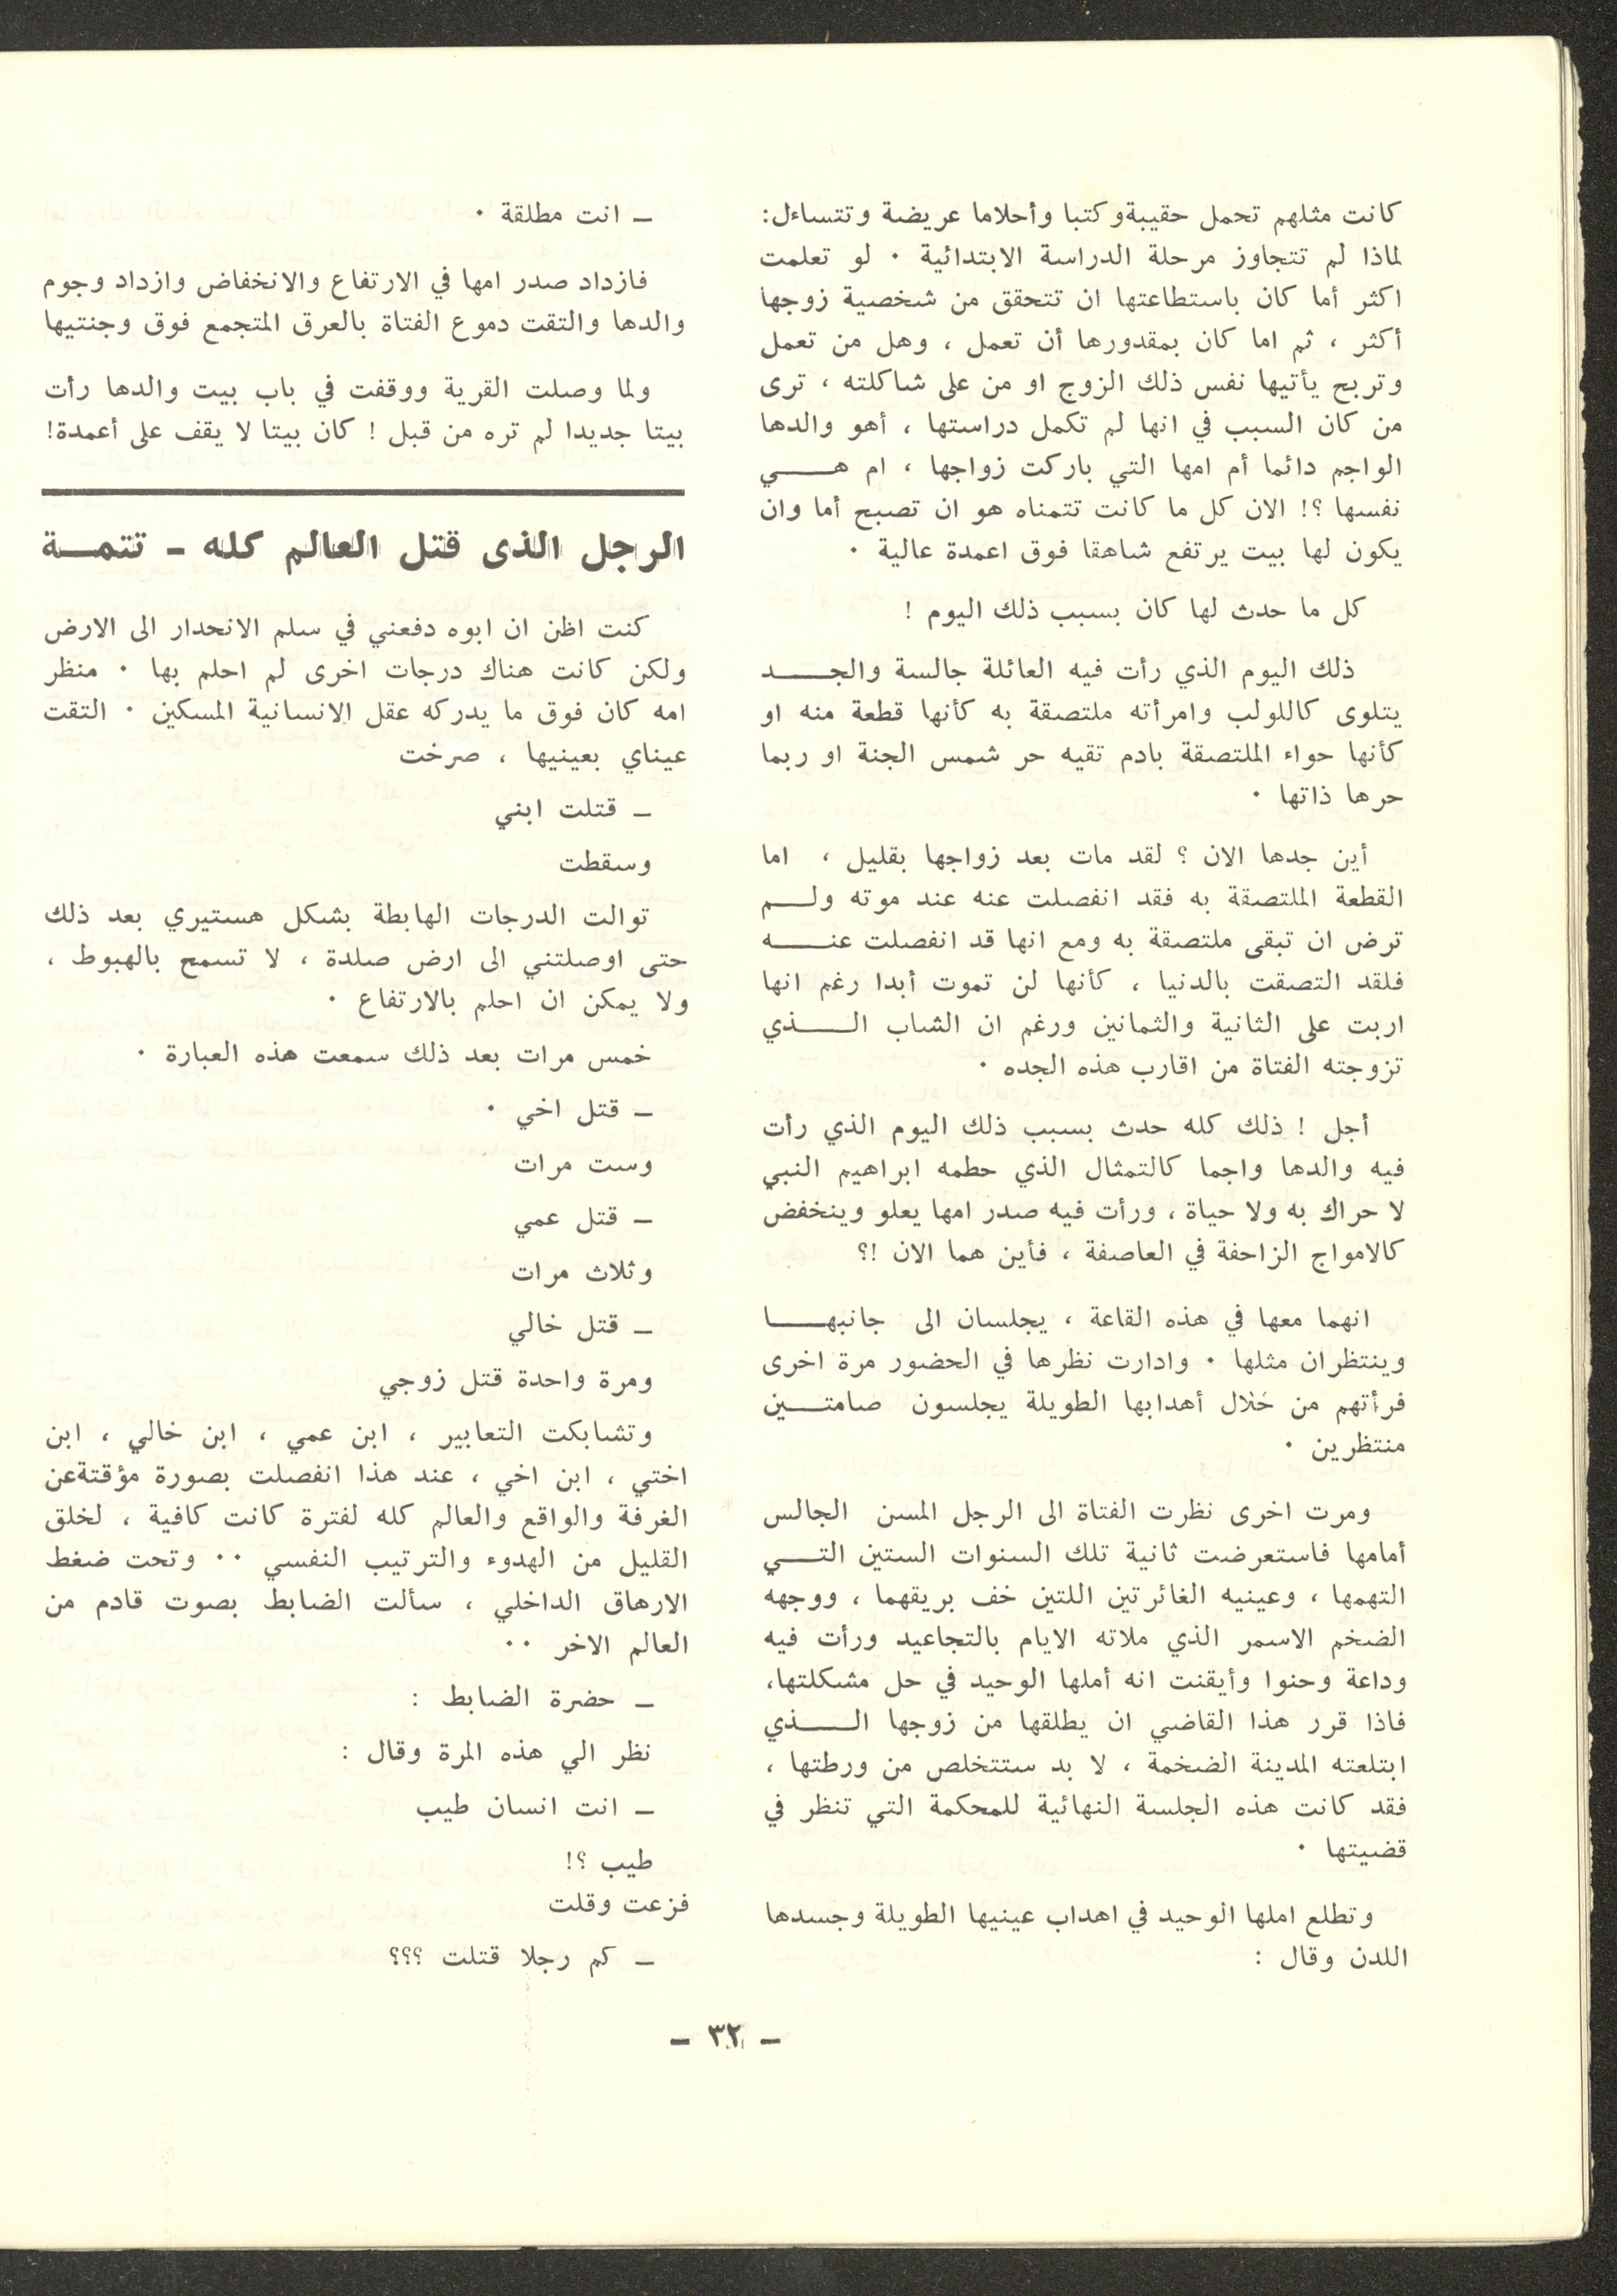 كانت مثلهم تحمل حقيبة وكتبا وأحلاما عريضة وتتساءل:
لماذا لم تتجاوز مرحلة الدراسة الابتدائية . لو تعلمت
اكثر أما كان باستطاعتها ان تتحقق من شخصية زوجها
أكثر ، ثم اما كان بمقدورها أن تعمل ، وهل من تعمل
وتربح يأتيها نفس ذلك الزوج او من على شاكلته ، ترى
من كان السبب في انها لم تكمل دراستها ، أهو والدها
الواجم دائما أم امها التي باركت زواجها ، ام هـــي
نفسها ؟! الان كل ما كانت تتمناه هو ان تصبح أما وان
يكون لها بيت يرتفع شاهقا فوق اعمدة عالية .
كل ما حدث لها كان بسبب ذلك اليوم !
ذلك اليوم الذي رأت فيه العائلة جالسة والجـــد
يتلوى كاللولب وامرأته ملتصقة به كأنها قطعة منه او
كأنها حواء الملتصقة بادم تقيه حر شمس الجنة او ربما
حرها ذاتها .
أين جدها الان ؟ لقد مات بعد زواجها بقليل ، اما
القطعة الملتصقة به فقد انفصلت عنه عند موته ولـــم
ترض ان تبقى ملتصقة به ومع انها قد انفصلت عنـــه
فلقد التصقت بالدنيا ، كأنها لن تموت أبدا رغم انها
اربت على الثانية والثمانين ورغم ان الشاب الـــذي
تزوجته الفتاة من اقارب هذه الجده .
أجل ! ذلك كله حدث بسبب ذلك اليوم الذي رأت
فيه والدها واجما كالتمثال الذي حطمه ابراهيم النبي
لا حراك به ولا حياة ، ورأت فيه صدر امها يعلو وينخفض
كالامواج الزاحفة في العاصفة ، فأين هما الان !؟
انهما معها في هذه القاعة ، يجلسان الى جانبهـــا
وينتظران مثلها . وادارت نظرها في الحضور مرة اخرى
فرأتهم من خلال أهدابها الطويلة يجلسون صامتـــين
منتظرين .
ومرت اخرى نظرت الفتاة الى الرجل المسن الجالس
أمامها فاستعرضت ثانية تلك السنوات الستين التـــي
التهمها ، وعينيه الغائرتين اللتين خف بريقهما ، ووجهه
الضخم الاسمر الذي ملاته الايام بالتجاعيد ورأت فيه
وداعة وحنوا وأيقنت انه أملها الوحيد في حل مشكلتها،
فاذا قرر هذا القاضي ان يطلقها من زوجها الـــذي
ابتلعته المدينة الضخمة ، لا بد ستتخلص من ورطتها ،
فقد كانت هذه الجلسة النهائية للمحكمة التي تنظر في
قضيتها .
وتطلع املها الوحيد في اهداب عينيها الطويلة وجسدها
اللدن وقال :
ــ انت مطلقة .
فازداد صدر امها في الارتفاع والانخفاض وازداد وجوم
والدها والتقت دموع الفتاة بالعرق المتجمع فوق وجنتيها
ولما وصلت القرية ووقفت في باب بيت والدها رأت
بيتا جديدا لم تره من قبل ! كان بيتا لا يقف على أعمدة!
الرجل الذى قتل العالم كله - تتمـــة
كنت اظن ان ابوه دفعني في سلم الانحدار الى الارض
ولكن كانت هناك درجات اخرى لم احلم بها . منظر
امه كان فوق ما يدركه عقل الانسانية المسكين . التقت
عيناي بعينيها ، صرخت
ــ قتلت ابني
وسقطت
توالت الدرجات الهابطة بشكل هستيري بعد ذلك
حتى اوصلتني الى ارض صلدة ، لا تسمح بالهبوط ،
ولا يمكن ان احلم بالارتفاع .
خمس مرات بعد ذلك سمعت هذه العبارة .
ــ قتل اخي .
وست مرات
ــ قتل عمي
وثلاث مرات
ــ قتل خالي
ومرة واحدة قتل زوجي
وتشابكت التعابير ، ابن عمي ، ابن خالي ، ابن
اختي ، ابن اخي ، عند هذا انفصلت بصورة مؤقتة عن
الغرفة والواقع والعالم كله لفترة كانت كافية ، لخلق
القليل من الهدوء والترتيب النفسي .. وتحت ضغط
الارهاق الداخلي ، سألت الضابط بصوت قادم من
العالم الاخر ..
ــ حضرة الضابط :
نظر الي هذه المرة وقال :
ــ انت انسان طيب
طيب ؟!
فزعت وقلت
ــ كم رجلا قتلت ؟؟؟
- ٣٢ -